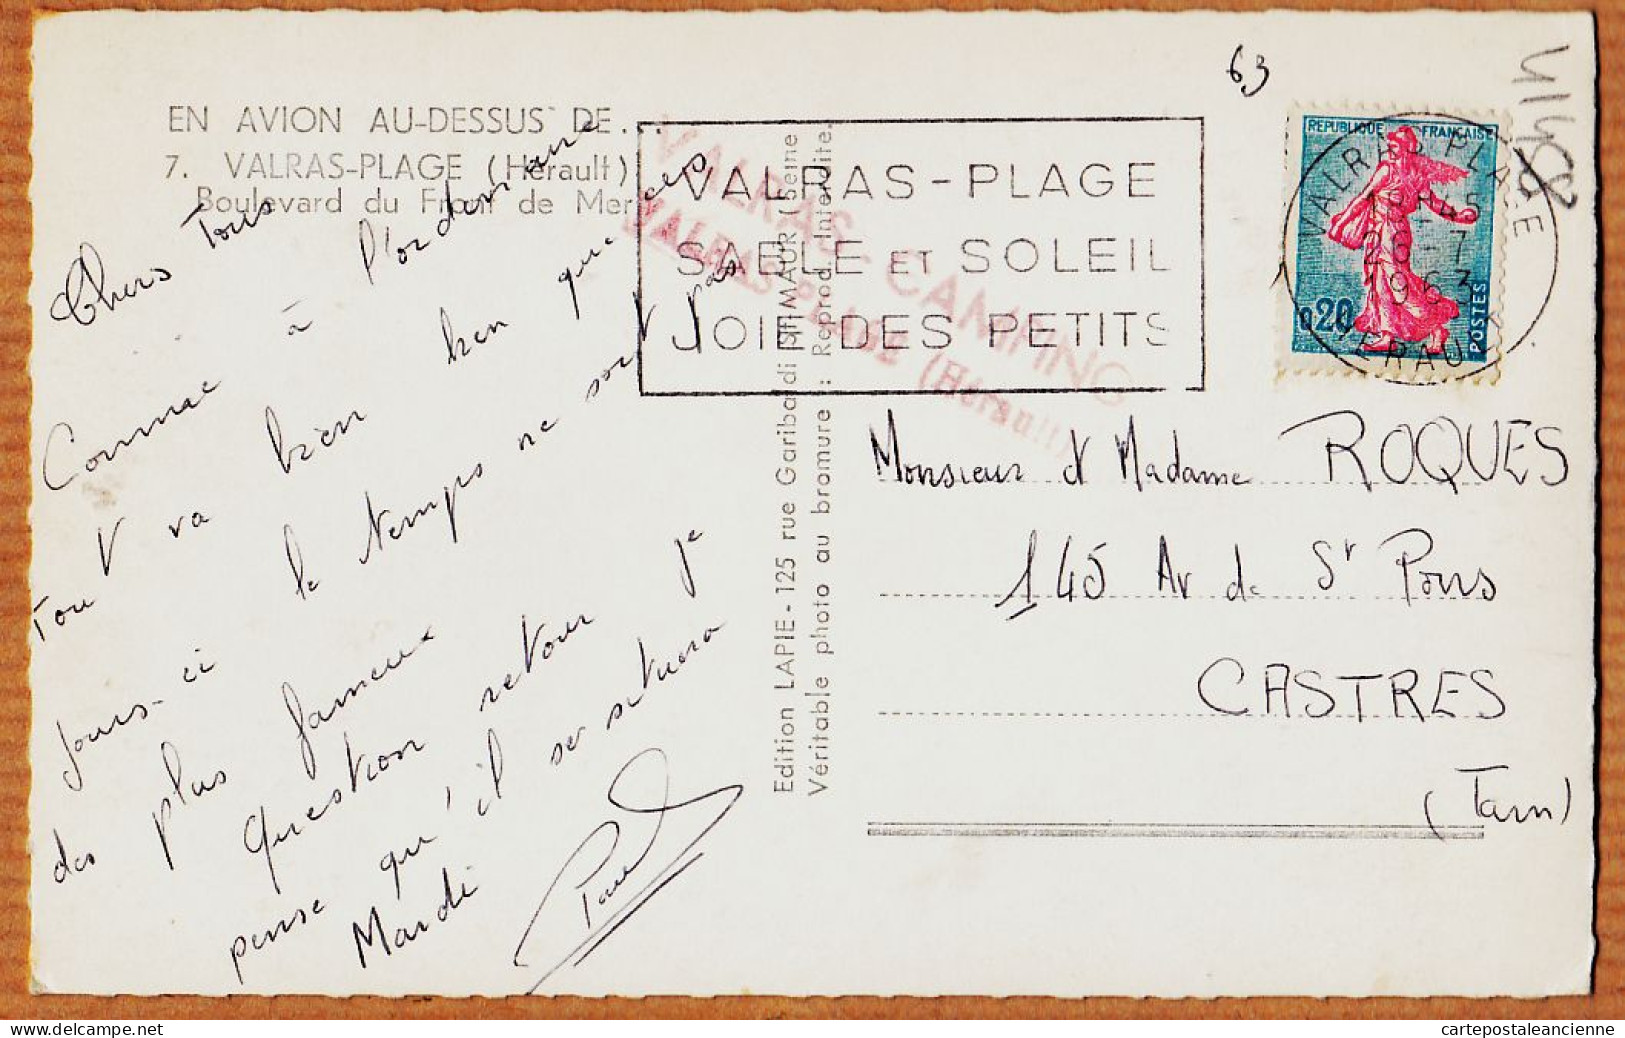 EN AVION AU-DESSUS DE...
7. VALRAS-PLAGE (Hérault)
Boulevard du Front de Mer
Chers Tous
Comme à l'ordinaire
Tout va bien bien que ces
jours-ci le temps ne soit pas
des plus fameux
Question retour je
pense qu'il se situera
Mardi
Paul
Edition LAPIE - 125 rue Garibaldi St MAUR (Seine
Véritable photo au bromure : Reprod. Interdite.
VALRAS-PLAGE
SABLE ET SOLEIL
JOIE DES PETITS
VALRAS CAMPING
VALRAS PLAGE (Hérault)
63
REPUBLIQUE FRANÇAISE
0,20
POSTES
VALRAS-PLAGE
19H45
26-7
1963
HERAULT
Monsieur et Madame ROQUES
145 Av de St Pons
CASTRES
(Tarn)
cartepostaleancienne
www.delcampe.net